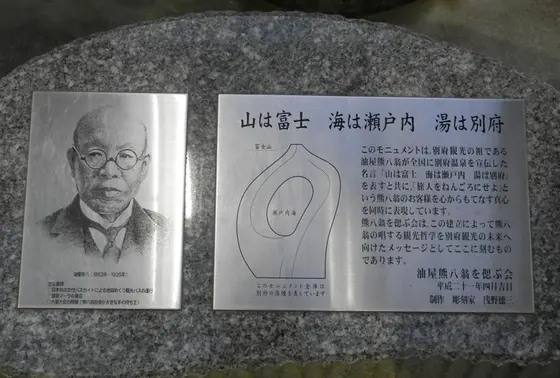 山は富士　海は瀬戸内　湯は別府
このモニュメントは、別府観光の祖である
油屋熊八翁が全国に別府温泉を宣伝した
名言「山は富士　海は瀬戸内　湯は別府」
を表すと共に、「旅人をねんごろにせよ」と
いう熊八翁のお客様を心からもてなす真心
を同時に表現しています。
熊八翁を偲ぶ会は、この建立によって熊八
翁の唱する観光哲学を別府観光の未来へ
向けたメッセージとしてここに刻むもの
であります。
油屋熊八翁を偲ぶ会
平成二十一年四月吉日
制作　彫刻家　浅野徳三
富士山
瀬戸内海
このモニュメント全体は
別府の湯煙を表しています
油屋熊八（1863年～1935年）